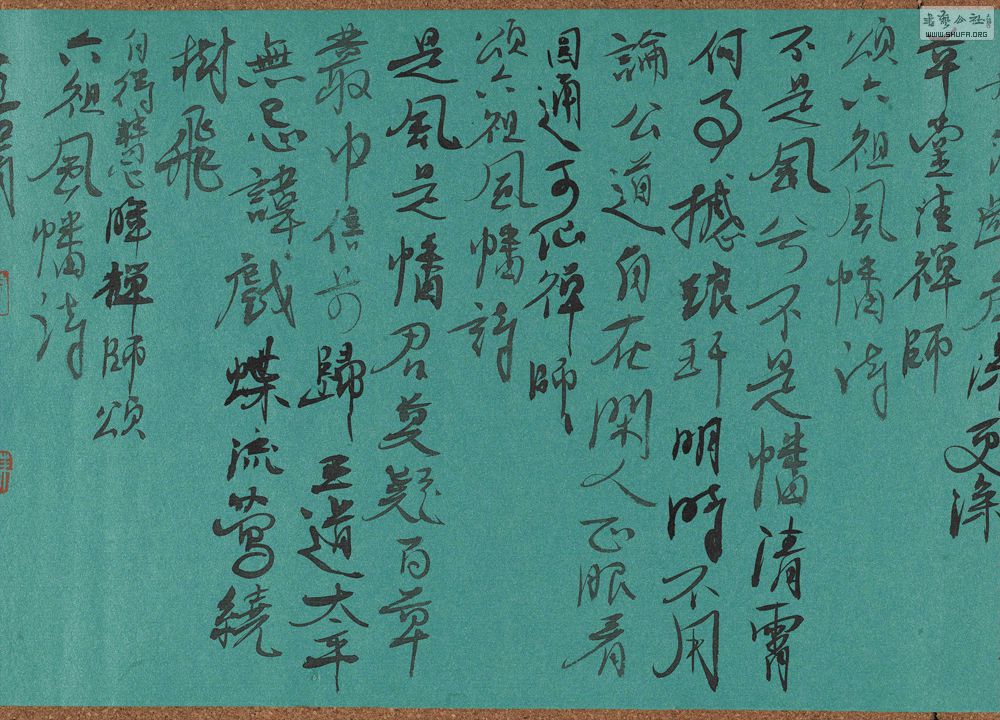 更深
草堂清禪師
頌六祖風幡詩
不是風兮不是幡清霄
何事撼琅玕明時不用
論公道自在閑人正眼看
圓通可仙禪師
頌六祖風幡詩
是風是幡君莫疑百草
叢中信步歸王道太平
無忌諱戲蝶流鶯繞
樹飛
自得慧暉禪師頌
六祖風幡詩
書藝公社
WWW.SHUFA.ORG